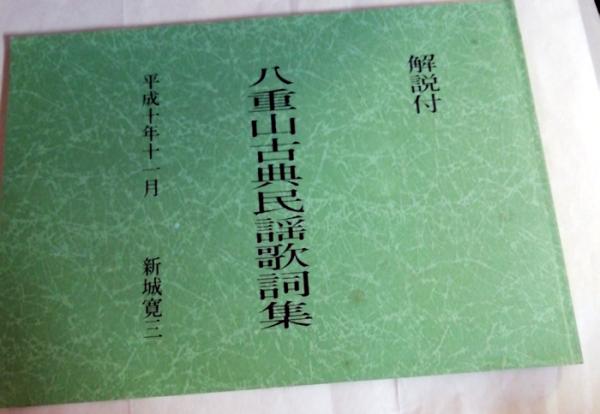 解説付
八重山古典民謡歌詞集
平成十年十一月 新城寛三